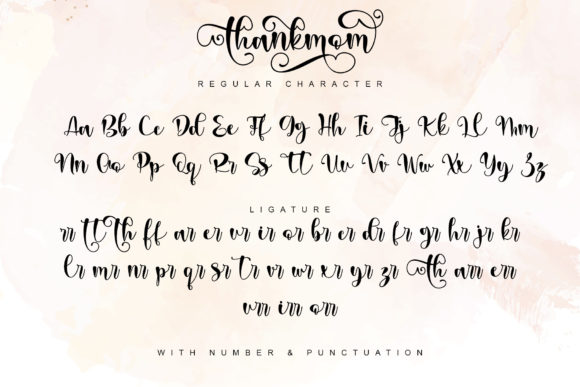 thankmom
REGULAR CHARACTER
Aa Bb Cc Dd Ee Ff Gg Hh Ii Jj Kk Ll Mm
Nn Oo Pp Qq Rr Ss Tt Uu Vv Ww Xx Yy Zz
LIGATURE
rr tt Th ff ar er ur ir or br cr dr fr gr hr jr kr
lr mr nr pr qr sr tr vr wr xr yr zr th arr err
urr irr orr
WITH NUMBER & PUNCTUATION